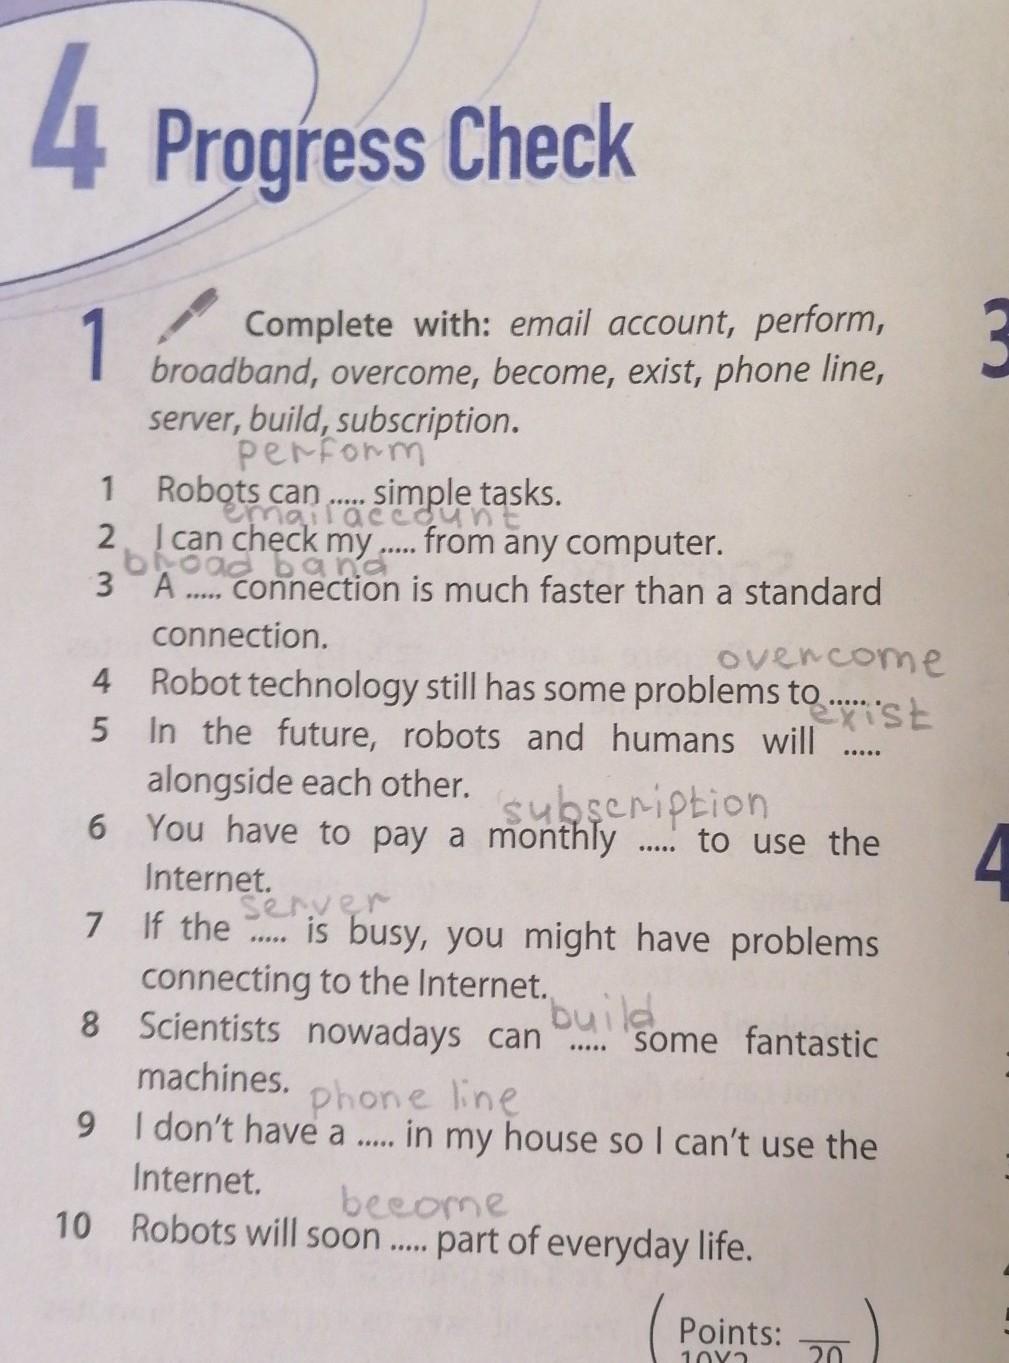 4 Progress Check
1 Complete with: email account, perform,
broadband, overcome, become, exist, phone line,
server, build, subscription.
perform
1 Robots can ..... simple tasks.
email account
2 I can check my ..... from any computer.
broad band
3 A ..... connection is much faster than a standard
connection.
overcome
4 Robot technology still has some problems to ..... .
exist
5 In the future, robots and humans will .....
alongside each other.
subscription
6 You have to pay a monthly ..... to use the
Internet.
server
7 If the ..... is busy, you might have problems
connecting to the Internet.
build
8 Scientists nowadays can ..... some fantastic
machines.
phone line
9 I don't have a ..... in my house so I can't use the
Internet.
become
10 Robots will soon ..... part of everyday life.
Points: __
10X2 20
3
4